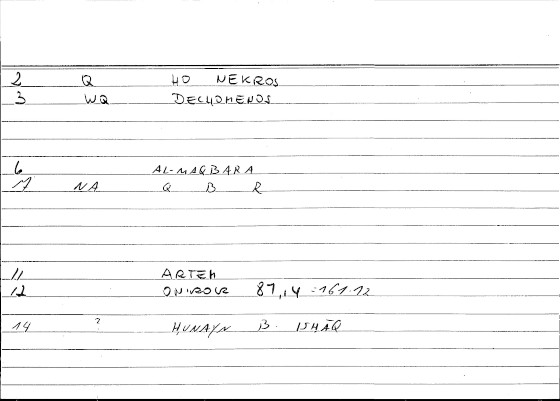 2 Q HO NEKROS
3 WQ DECHOMENOS
6 AL-MAQBARA
7 NA Q B R
11 ARTEM
12 ONIROCR 87,14 =161.12
14 ? HUNAYN B. ISHĀQ